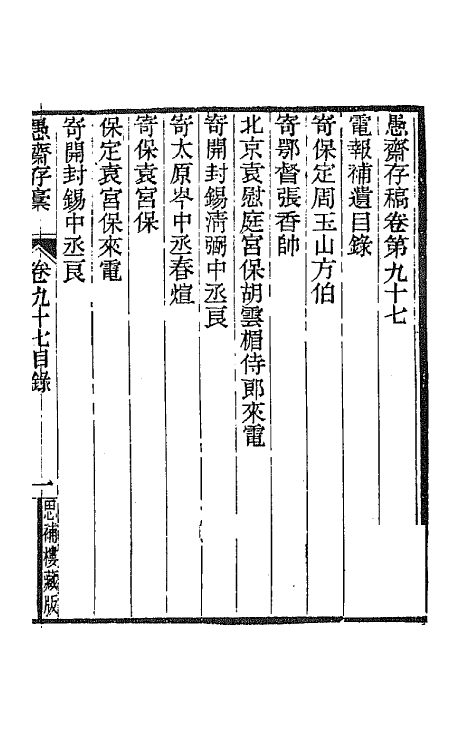 愚齋存稿卷第九十七
電報補遺目錄
寄保定周玉山方伯
寄鄂督張香帥
北京袁慰庭宮保胡雲楣侍郎來電
寄開封錫清弼中丞良
寄太原岑中丞春煊
寄保袁宮保
保定袁宮保來電
寄開封錫中丞良
愚齋存稾 卷九十七目錄 一 思補樓藏版